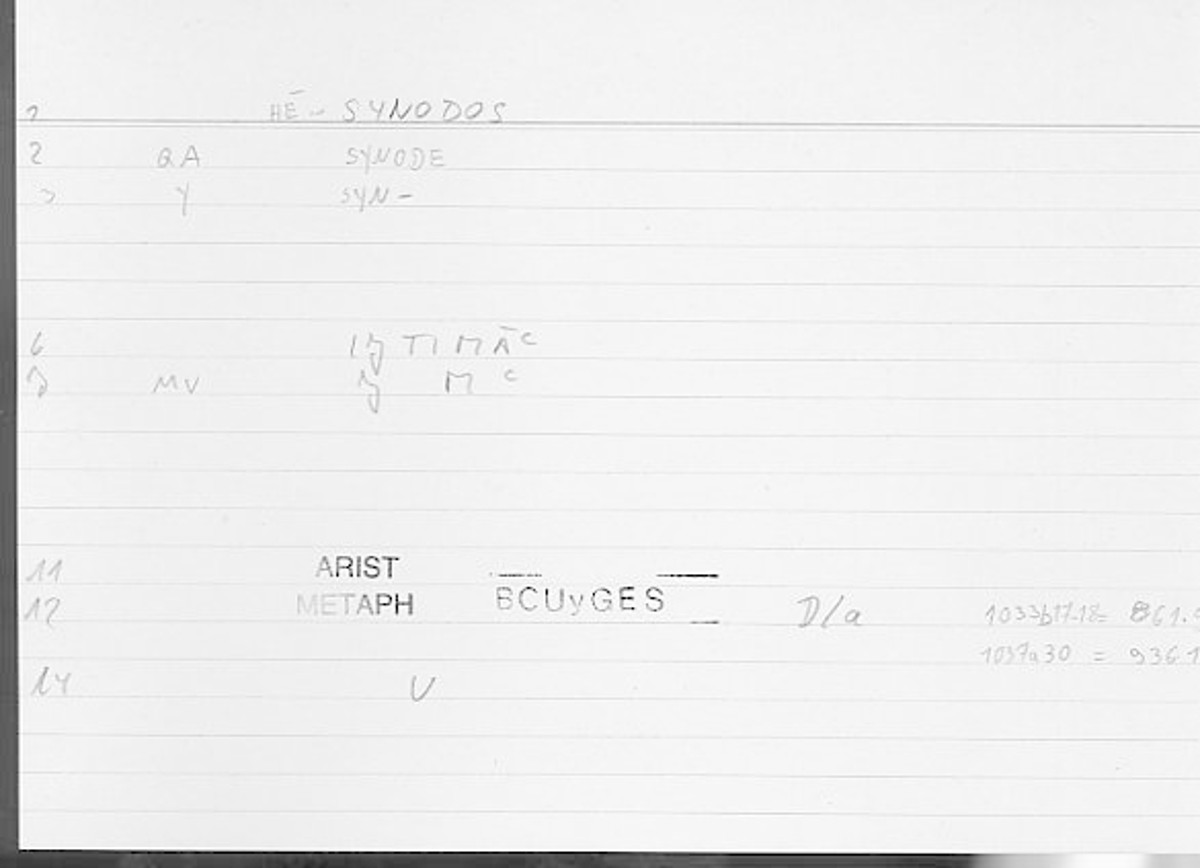 1 HĒ - SYNODOS
2 QA SYNODE
3 Y SYN-
6 TIMĀC
MV M C
11 ARIST
12 METAPH BCUyGES D/a 1033b17-18= 861.
1037a30 = 936.1
14 U